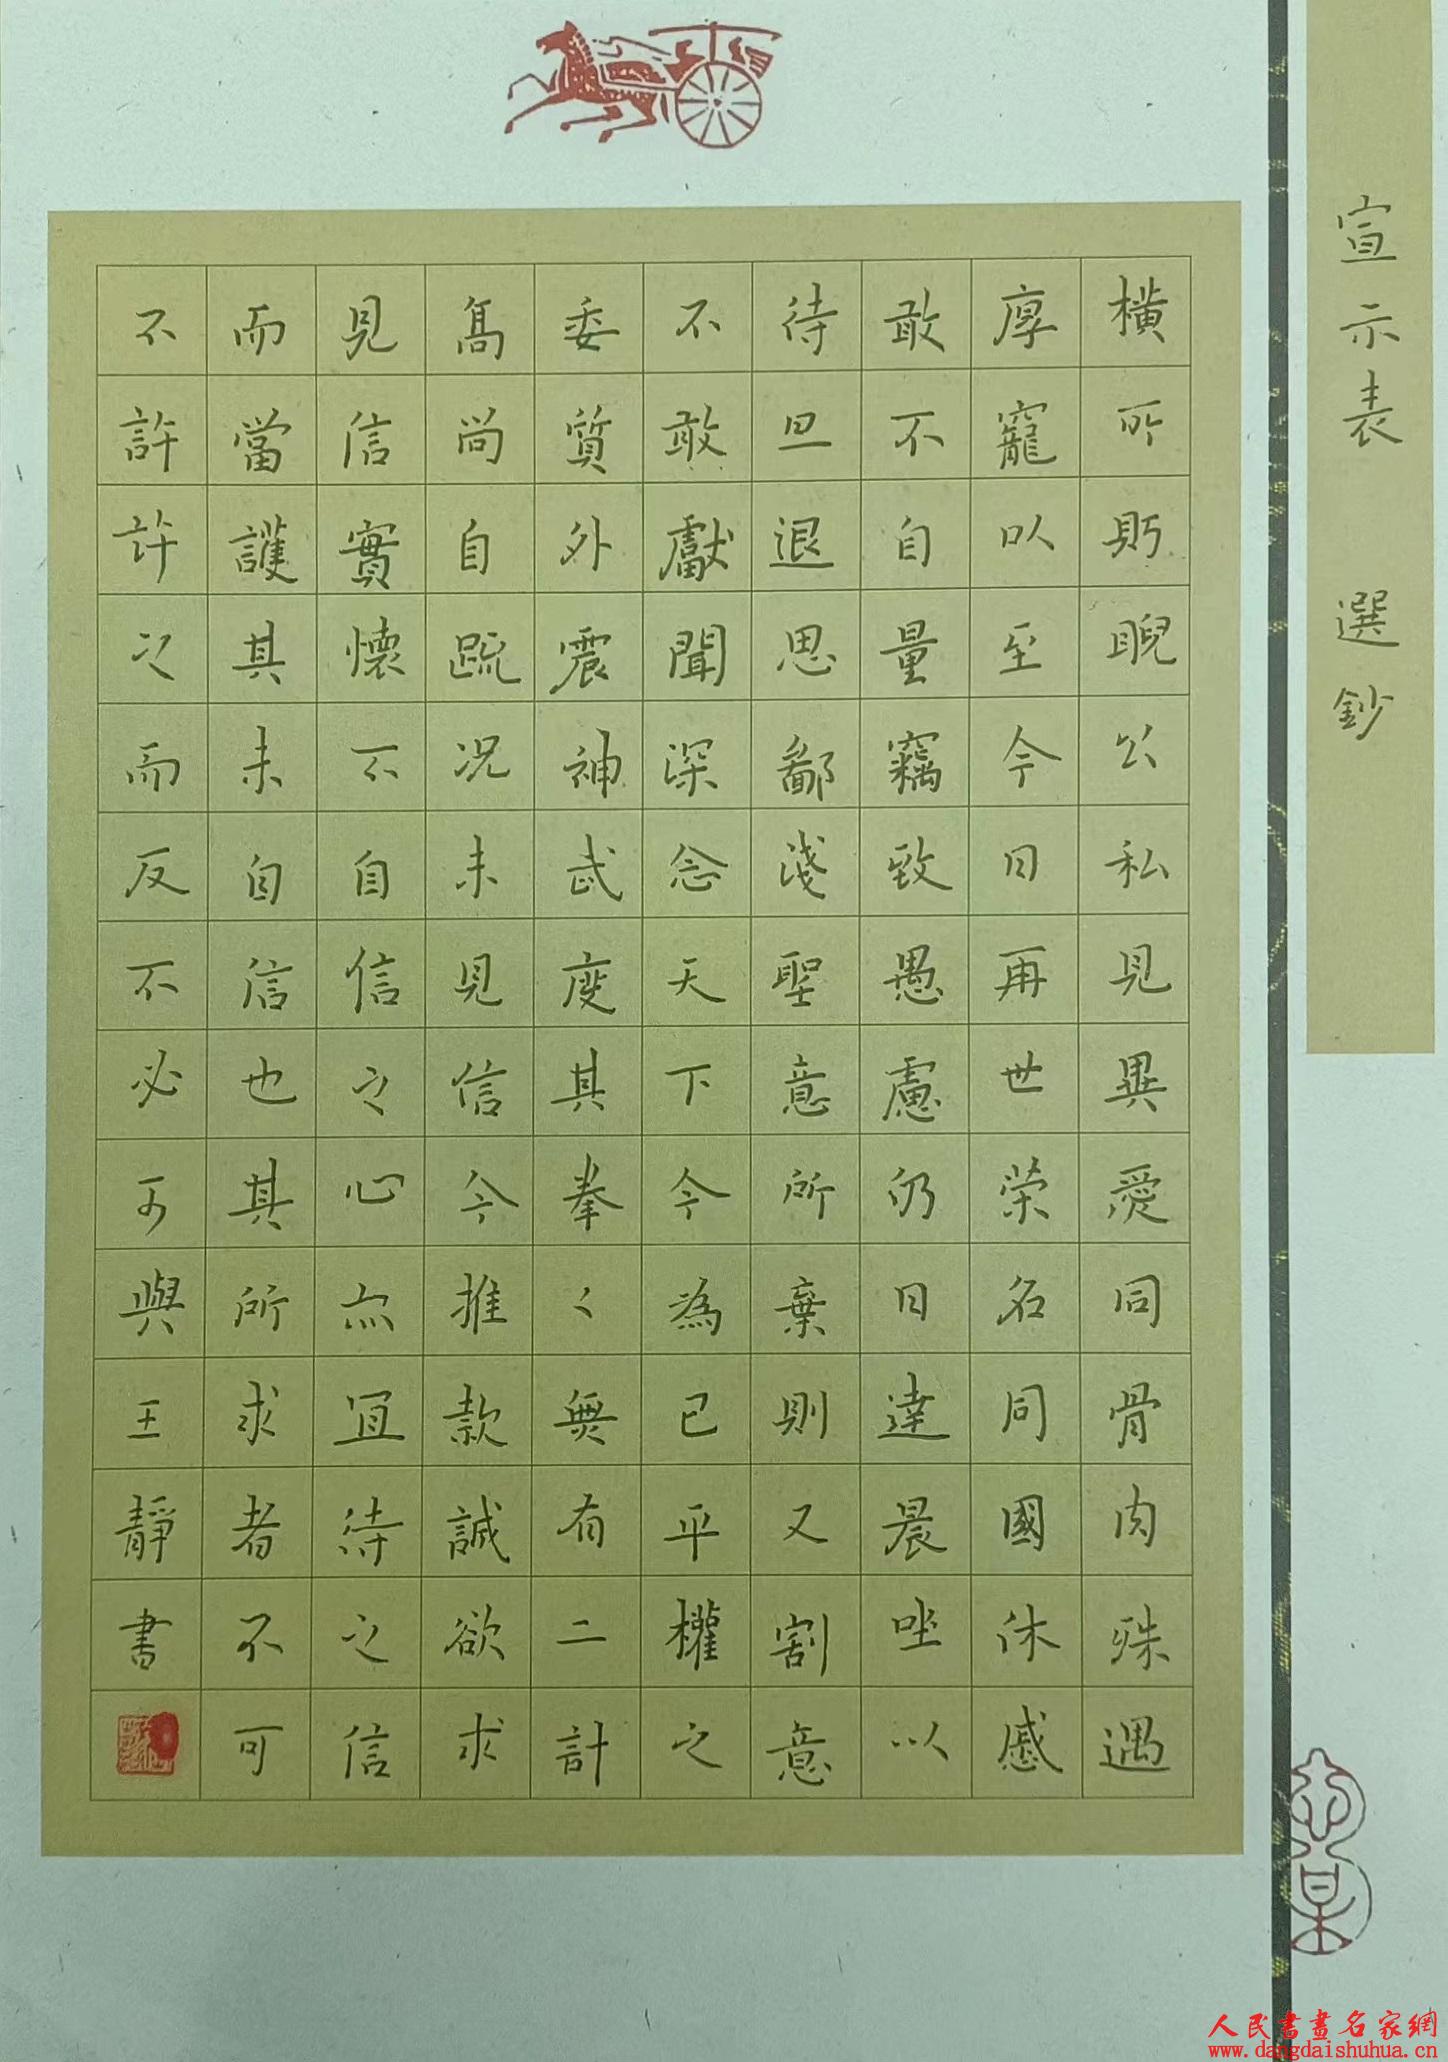 宣示表 選鈔
橫所䀢睨公私見異愛同骨肉殊遇
厚寵以至今日再世榮名同國休慼
敢不自量竊致愚慮仍日達晨坐以
待旦退思鄙淺聖意所棄則又割意
不敢獻聞深念天下今為已平權之
委質外震神武度其拳〻無有二計
高尚自疏况未見信今推款誠欲求
見信實懷不自信之心亦宜待之信
而當護其未自信也其所求者不可
不許許之而反不必可與王靜書
人民書畫名家網
www.dangdaishuhua.cn